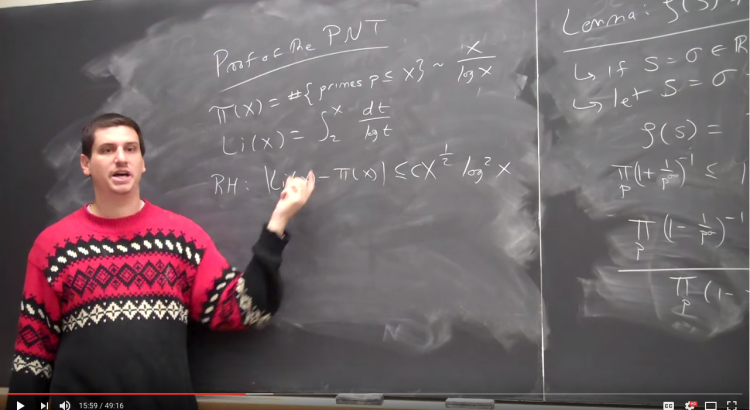 Proof of the PNT
π(x) = #{primes p ≤ x} ~ x/log x
Li(x) = ∫₂ˣ dt/log t
RH: |Li( ) - π(x)| ≤ c x^{1/2} log² x
Lemma: ζ(s)
↳ if s = σ ∈ R
↳ let s = σ
ζ(s) =
∏_p (1 + 1/p^σ)^{-1} ≤ 1
∏_p (1 - 1/p^σ)^{-1}
∏_p (1 -
15:59 / 49:16
CC